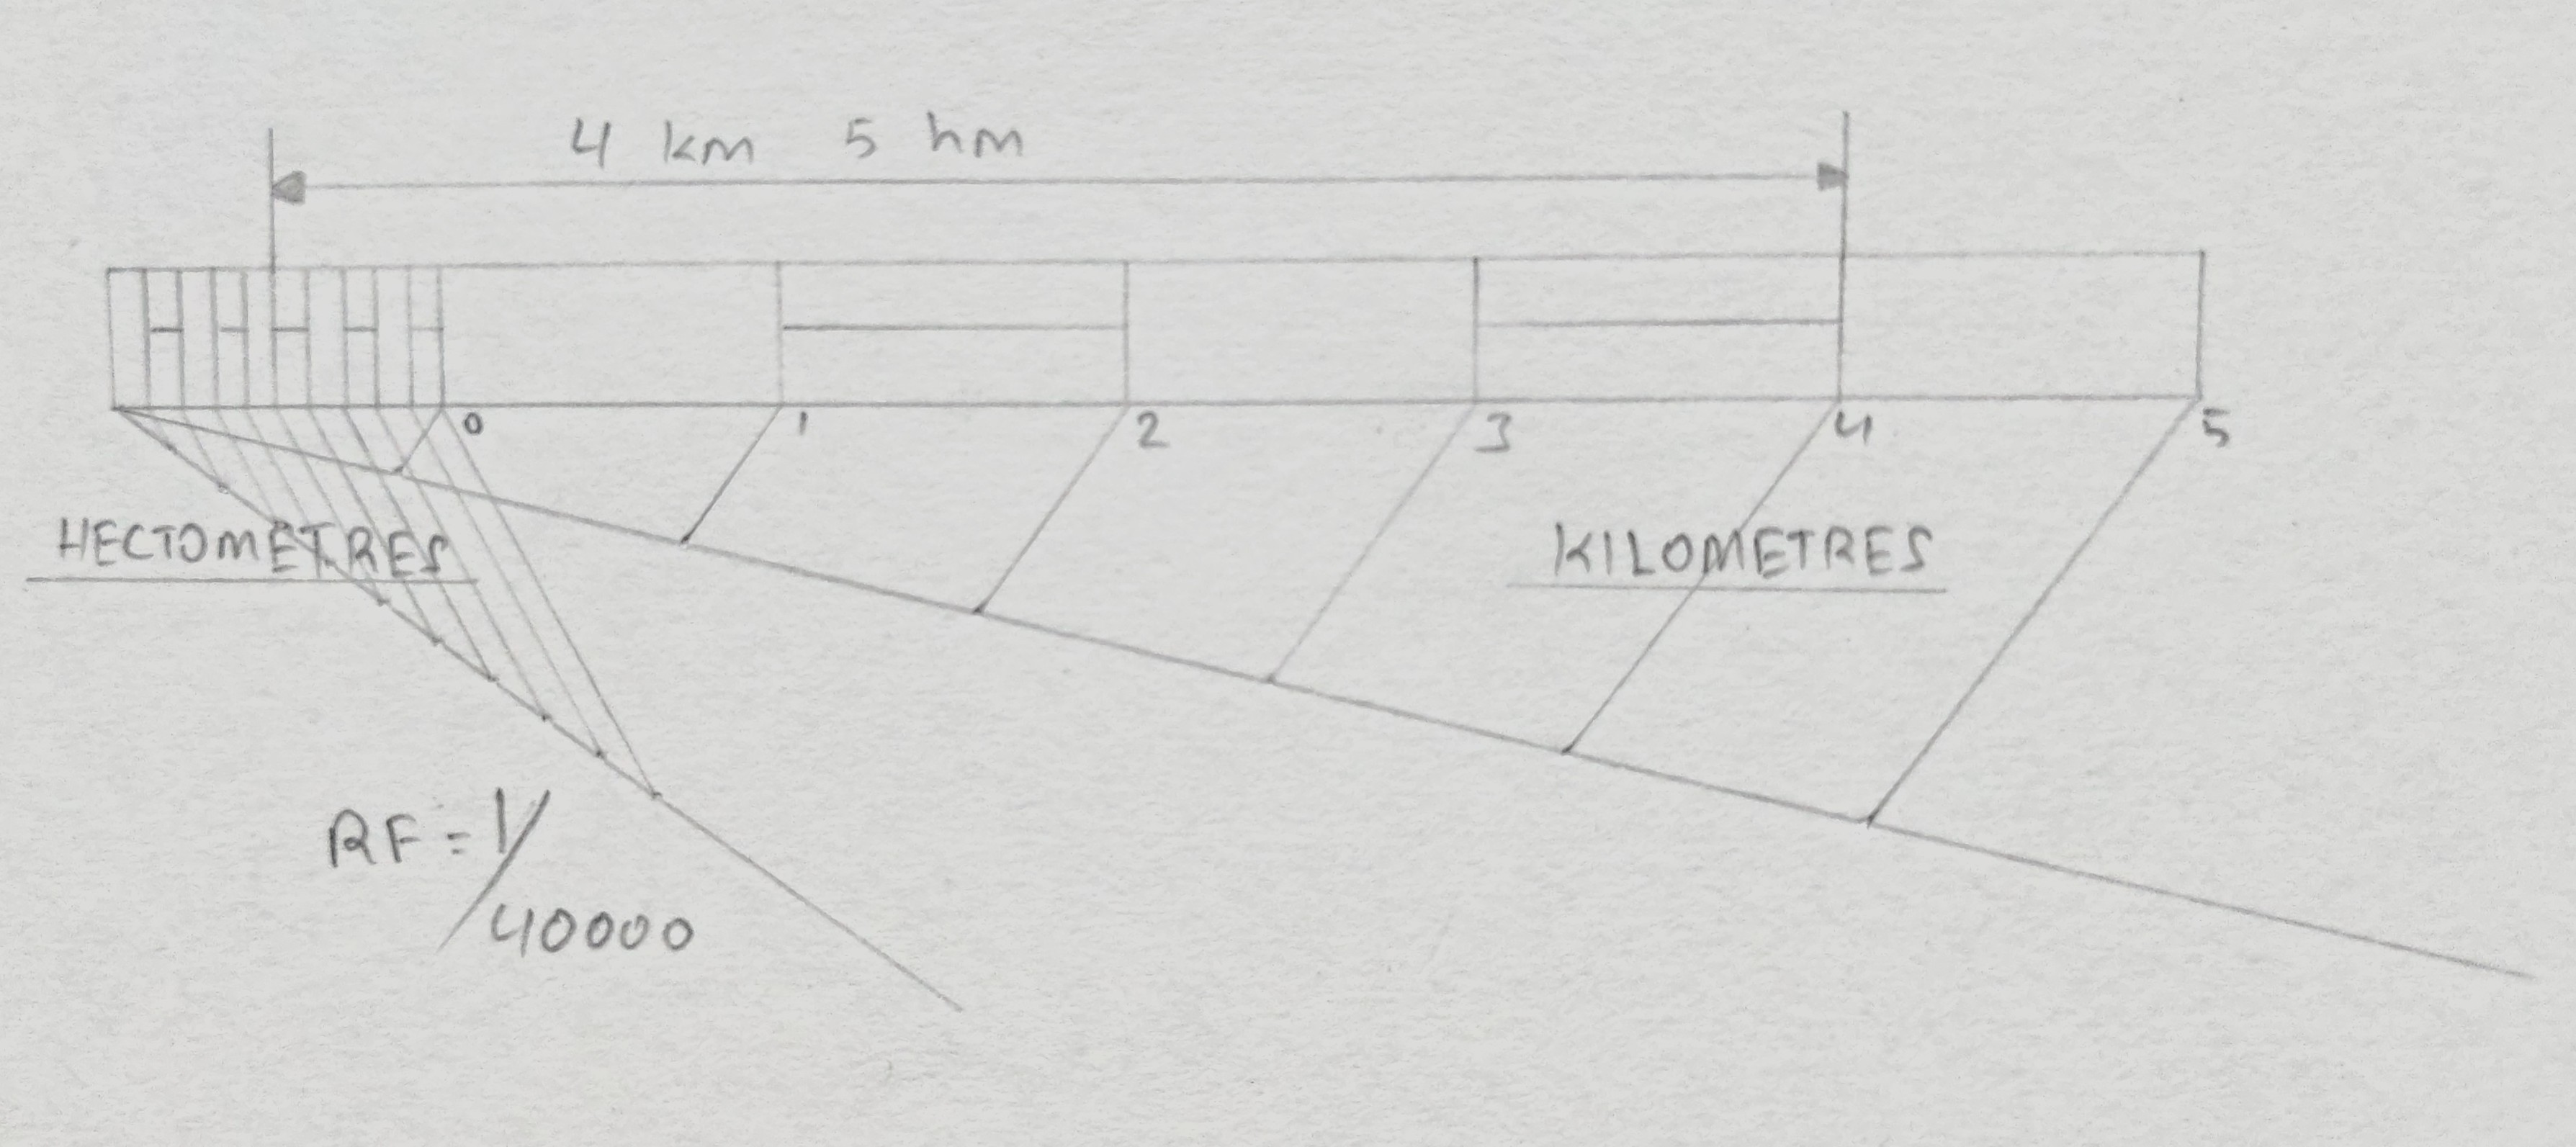 4 km 5 hm
0 1 2 3 4 5
HECTOMETRES KILOMETRES
RF = 1/
40000